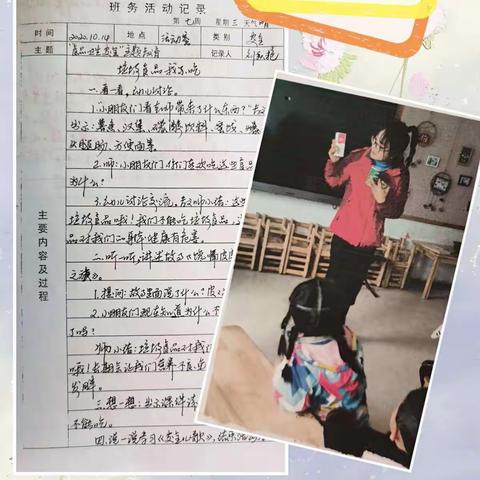 班务活动记录
第七周 星期三 天气晴
时间 2022.10.14 地点 活动室 类别 安全
主题 "食品卫生安全"主题教育 记录人
垃圾食品我不吃
一、看一看,幼儿讨论。
1."小朋友们看老师带来了什么东西?"
出示:薯条、汉堡、碳酸饮料、
方便面等。
2.师:小朋友们,你们喜欢吃这些食品
为什么?
3.幼儿讨论交流,教师小结:这些
垃圾食品哦!我们不能吃垃圾食品,
品对我们的身体健康有危害。
二、听一听,讲述故事《
1.提问:故事里面说了什么?
2.小朋友们现在知道为什么不
了吗?
师小结:垃圾食品对我们
哦!长期会让我们营养不良,
发胖。
三、想一想:出示课件
不能吃。
四、说一说学习《安全儿歌》,
主要内容及过程